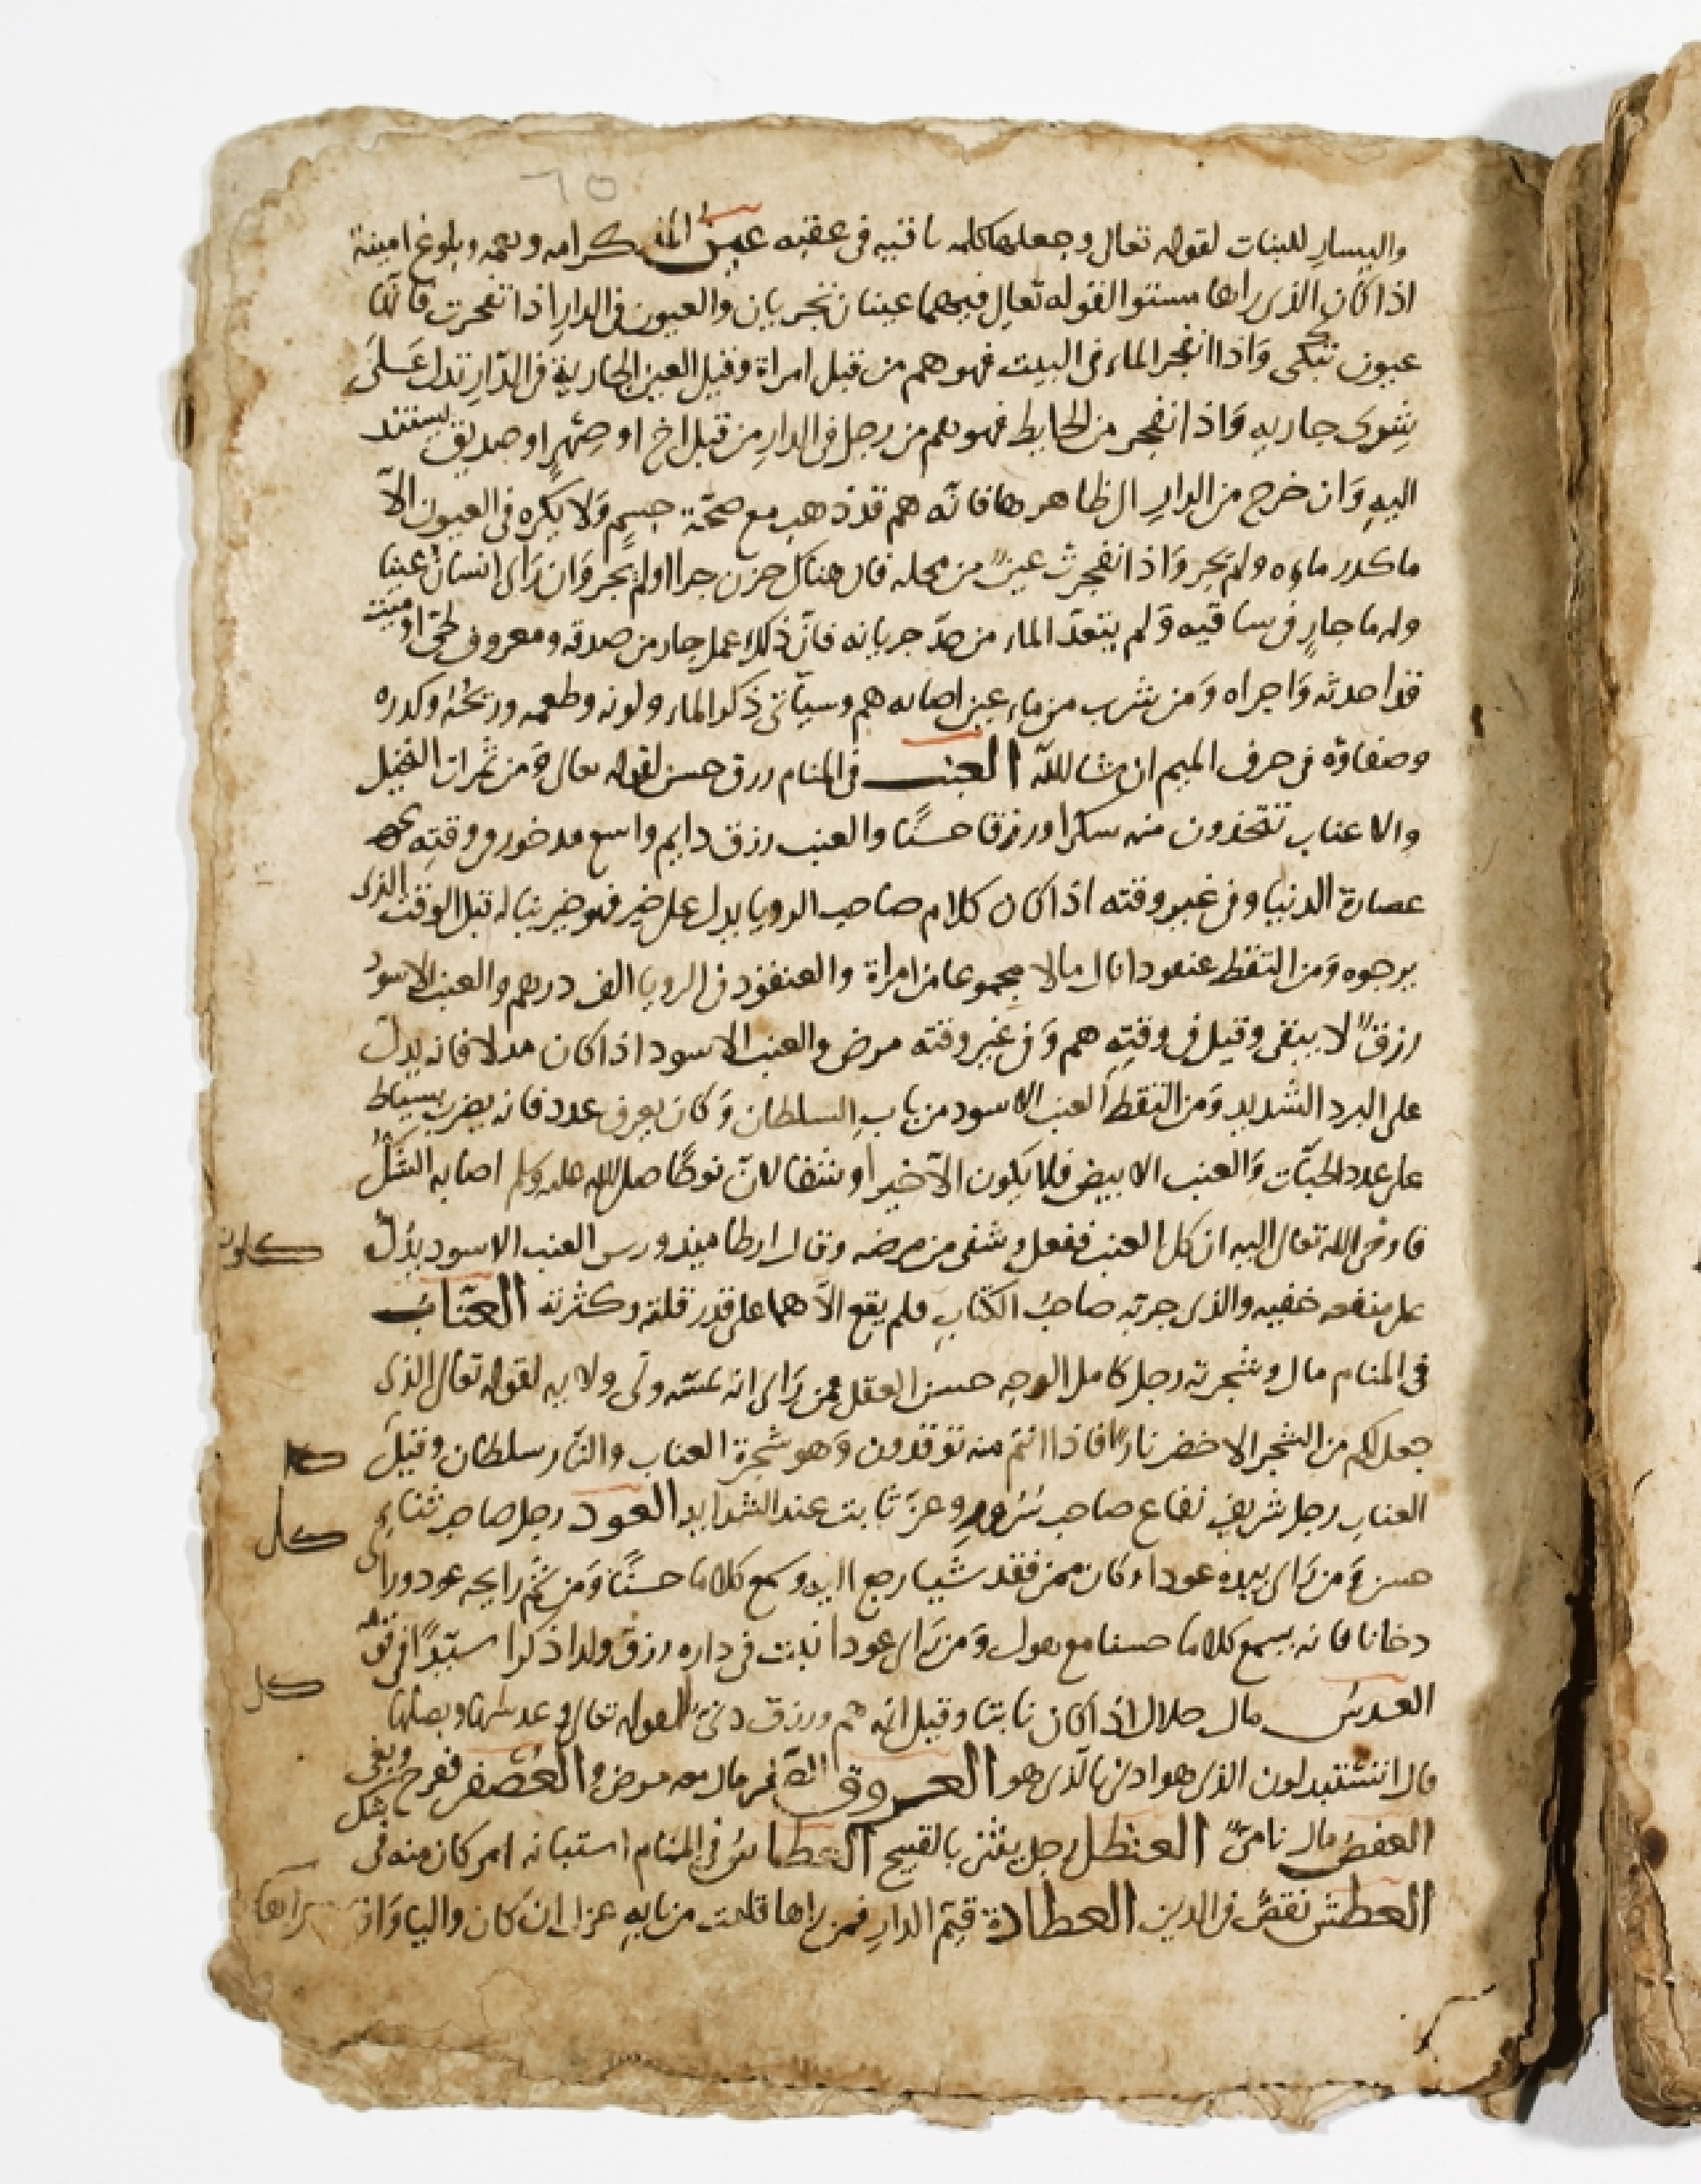 ٦٥
واليسار للبنات لقوله تعالى وجعلها كلمه باقيه في عقبه عين الماء كرامه ونعمه وبلوغ امنية
اذا كان الذي راها مستورا لقوله تعالى فيهما عينان تجريان والعيون في الدار اذا تفجرت فانها
عيون تبكي وَاذا انفجر الماء في البيت فهو هم من قبل امراة وقيل العين الجارية في الدار تدل عَلَى
شِرَى جاريه وَاذا انفجر من الحايط فهو هم من رجل في الدارِ من قبل اخ او صِهرٍ او صديق يستند
اليهِ وَان خرج من الدارِ الى ظاهرها فانه هم قد ذهب مع صحّة جسمٍ وَلا يكره في العيون الاّ
ما كدر ماوه ولم يجر وَاذا انفجرت عينٌ من محله فان هناك حزن جرا اولم يجر وَان رَاى انسان عينا
وله ما جارٍ في ساقيه وَلم يتعدّ الماء من حدّ جريانه فانّ ذلك عمل جار من صدقه ومعروف لحيّ او ميّت
قد احدثه وَاجراه وَمن شرب من ماء عين اصابه هم وسياتي ذكر الماء ولونه وطعمه وريحُهُ وكدره
وصفاؤه في حرف الميم ان شا الله العنب في المنام رزق حسن لقوله تعالى وَمن ثمرات النخيل
والاعناب تتخذون منه سكرا ورزقا حسنًا والعنب رزق دايم واسع مدخور في وقتِهِ
عصارة الدنيا وفي غير وقته اذا كان كلام صاحب الرويا يدل على خير فهو خير يناله قبل الوقت الذى
يرجوه وَمن التقط عنقودا نال مالا مجموعا من امراة والعنقود في الرويا الف درهم والعنب الاسود
رزقٌ لا يبقى وقيل في وقتِهِ هم وَفي غير وقته مرض والعنب الاسود اذا كان مدلا فانه يدل
على البرد الشديد وَمن التقط العنب الاسود من باب السلطان وَكان يعرف عدد فانه يضرب بسياط
على عدد الحبّات وَالعنب الابيض فلا يكون الاّ خير او شفا لانّ نوحًا صلى الله عليه وسلم اصابه السُّلُّ
فاوحى الله تعالى اليه ان كل العنب ففعل وشفى من مرضه وقال ارطاميدورس العنب الاسود يدُلّ
على منفعه خفيه والذى جربه صاحبُ الكتابِ فلم يقع الاّ هما على قدر قلته وكثرته العنّابُ
في المنام مال وشجرته رجل كامل الوجه حسن العقل فمن رَاى انه ولى ولايه لقوله تعالى الذي
جعل لكم من الشجر الاخضر نارًا فاذا انتم منه توقدون وَهو شجرة العناب والنّار سلطان وقيلَ
العناب رجل شريف نفاع صاحب سُرورٍ وعزّ ثابت عند الشدايد العود رجل صاحب ثناءٍ
حسن وَمن رَاى بيده عودا وكان ممن فقد شيا رجع اليه وسمع كلاما حسنًا وَمن شم رايحه عود ورا
دخانا فانه يسمع كلاما حسنا مع هول وَمن رَاى عودا نابت في داره رزق ولدا ذكرا سيّدًا في قومه
العدسُ مال حلال اذا كان نابتا وقيل انه هم ورزق دنيٌّ لقوله تعالى وعدسها وبصلها
قال اتستبدلون الذي هو ادنى بالذى هو العروق من مال معه مرض والعصفر فرح وبغى
العفصُ مال نامىٌّ الحنظل رجل يثنى بالقبيح العطاسُ في المنام استبانه امر كان منه في شك
العطش نقصٌ في الدين العطادة قيّم الدارِ فمن راها قلعت من بابهِ عزل ان كان واليا وَاذ راها